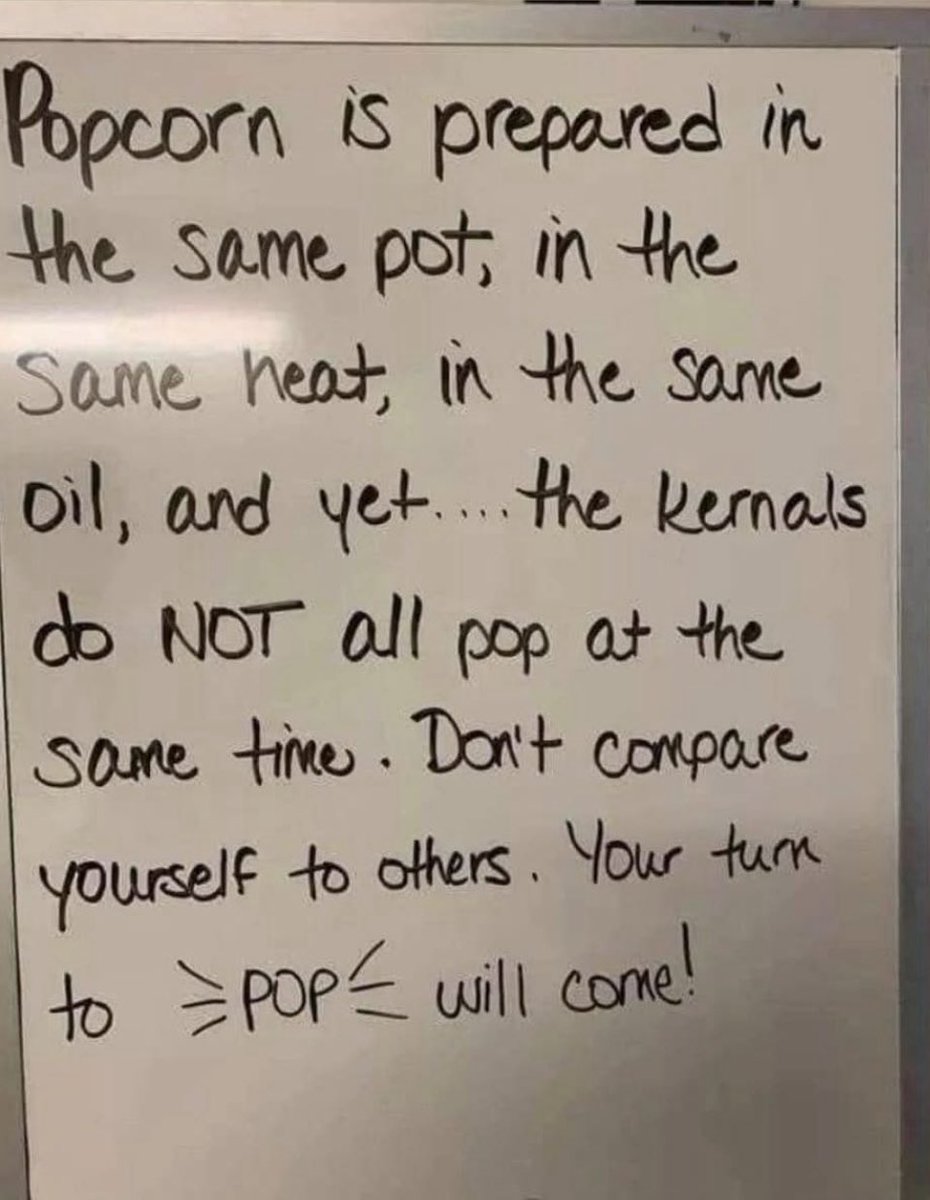 Popcorn is prepared in
the same pot, in the
same heat, in the same
oil, and yet.... the kernals
do NOT all pop at the
same time. Don't compare
yourself to others. Your turn
to POP will come!